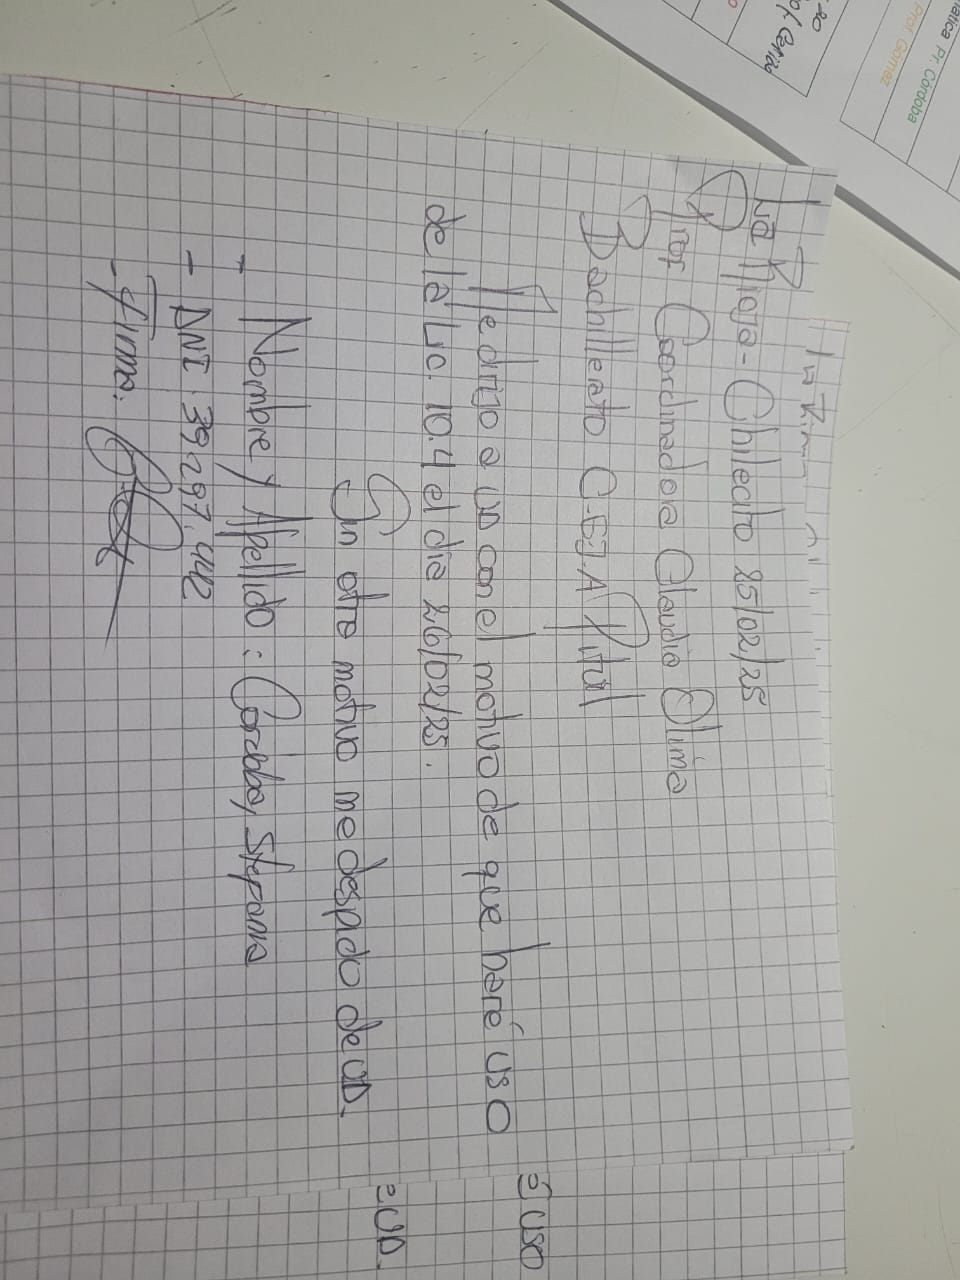 La Rioja - Chilecito 25/02/25
Prof Coordinadora Claudia Olima
Bachillerato C.E.J.A Pituil
Me dirijo a ud con el motivo de que haré uso
de la Lic. 10.4 el día 26/02/25.
Sin otro motivo me despido de UD.
- Nombre y Apellido : Cordoba, Stefania
- DNI : 39.297.442
- Firma:
uso
UD.
Pr. Córdoba
Prof Gomez